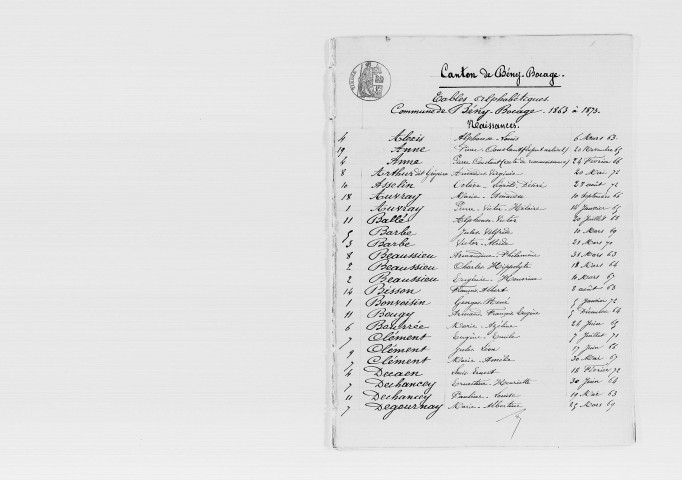 Canton de Bény-Bocage.
Tables alphabétiques.
Commune de Bény-Bocage. 1863 à 1873.
Naissances.
4 Alexis Alphonse Louis 6 Mars 63
19 Anne Pierre Constant 20 Novembre 65
4 Anne Pierre Constant 24 Février 66
8 Arthur dit Virginie 20 Mai 72
10 Asselin Désiré 28 août 72
18 Auvray Marie 10 Septembre 66
1 Auvray Pierre Victor 14 Janvier 67
11 Ballé Alphonse Victor 20 Juillet 68
5 Barbe Jules 10 Mars 69
3 Barbe Victor 21 Mars 70
8 Beaussieu Philomène 31 Mars 63
2 Beaussieu Charles Hippolyte 18 Mars 64
2 Beaussieu Eugénie 10 Mars 67
14 Bisson François Albert 2 août 63
1 Bonvoisin Georges René 5 Janvier 72
11 Bougy Armand François Eugène 5 Décembre 64
6 Bourrée Marie 26 Juin 65
7 Clément Eugène Emile 7 Juillet 71
9 Clément Jules Léon 17 Juin 66
7 Clément Marie 30 Mai 67
4 Decaen Louis Ernest 18 Février 72
7 Dechancey Ernestine Henriette 30 Juin 64
11 Dechancey Pauline Louise 10 Mai 63
7 Degournay Marie Albertine 25 Mars 69